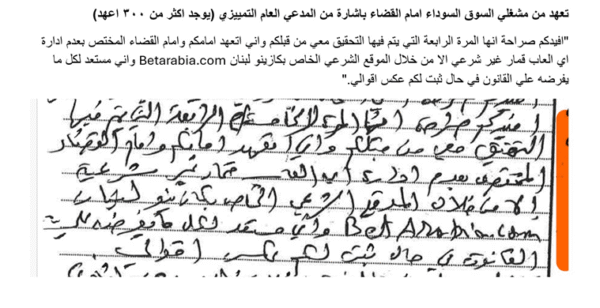 تعهد من مشغلي السوق السوداء امام القضاء باشارة من المدعي العام التمييزي (يوجد اكثر من ٣٠٠ اعهد)
"افيدكم صراحة انها المرة الرابعة التي يتم فيها التحقيق معي من قبلكم واني اتعهد امامكم وامام القضاء المختص بعدم ادارة
اي العاب قمار غير شرعي الا من خلال الموقع الشرعي الخاص بكازينو لبنان Betarabia.com واني مستعد لكل ما
يفرضه علي القانون في حال ثبت لكم عكس اقوالي."
افيدكم صراحة انها المرة الرابعة التي يتم فيها
التحقيق معي من قبلكم واني اتعهد امامكم وامام القضاء
المختص بعدم ادارة اي العاب قمار غير شرعية
الا من خلال الموقع الشرعي الخاص بكازينو لبنان
Bet Arabia.com واني مستعد لكل ما يفرضه علي
القانون في حال ثبت لكم عكس اقوالي.